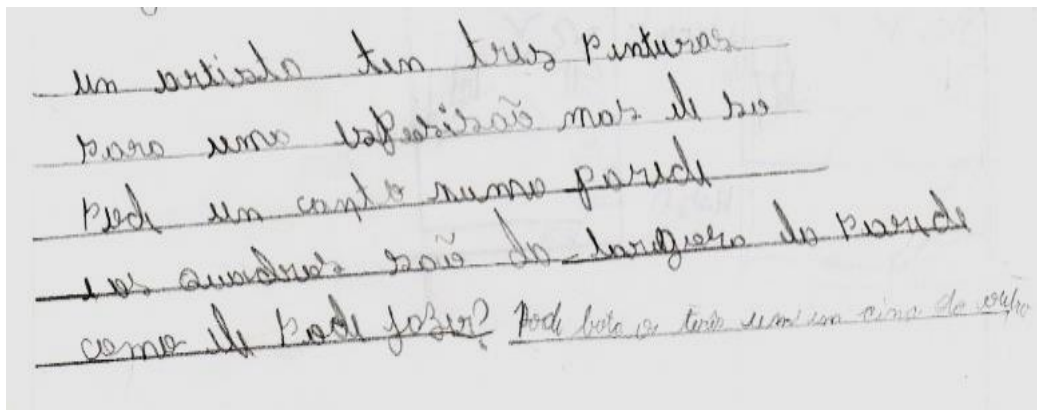 un tem tres pinturas
para uma mas ele so
un canto numa parede
e os quadros saõ da largura da parede
como ele pode fazer? Pode bota os treis um em cima do outro